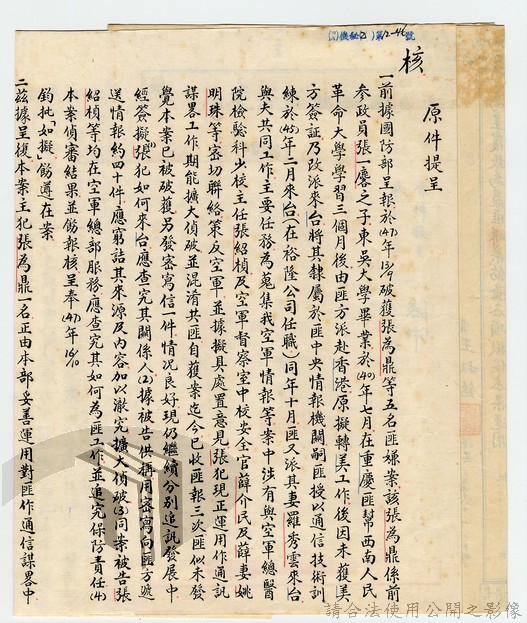 (47)機秘(乙)第12-46號
核
原件提呈
一前據國防部呈報於(47)年15/9破獲張為鼎等五名匪嫌案該張為鼎係前
參政員張一麐之子東吳大學畢業於(40)年七月在重慶匪幫西南人民
革命大學學習三個月後由匪方派赴香港原擬轉美工作後因未獲美
方簽証乃改派來台將其隸屬於匪中央情報機關嗣匪授以通信技術訓
練於(45)年二月來台(在裕隆公司任職)同年十月匪又派其妻羅秀雲來台
與夫共同工作主要任務為蒐集我空軍情報等案中涉有與空軍總醫
院檢驗科少校主任張紹楨及空軍督察室中校安全官薛介民及薛妻姚
明珠等密切聯絡策反空軍並據擬具處置意見張犯現正運用作通訊
謀畧工作期能擴大偵破並混淆共匪自獲案迄今已收匪報三次匪似未發
覺本案已被破獲另發密寫信一件情況良好現仍繼續分別追訊發展中
經簽擬張犯如何來台應查究其關係人(2)據被告供稱用密寫向匪方遞
送情報約四十件應窮詰其來源及內容加以澈究擴大偵破(3)同案被告張
紹楨等均在空軍總部服務應查究其如何為匪工作並追究保防責任(4)
本案偵審結果並飭報核呈奉(47)年15/10
鈞批「如擬」飭遵在案
二茲據呈復本案主犯張為鼎一名正由本部妥善運用對匪作通信謀畧中
請合法使用公開之影像